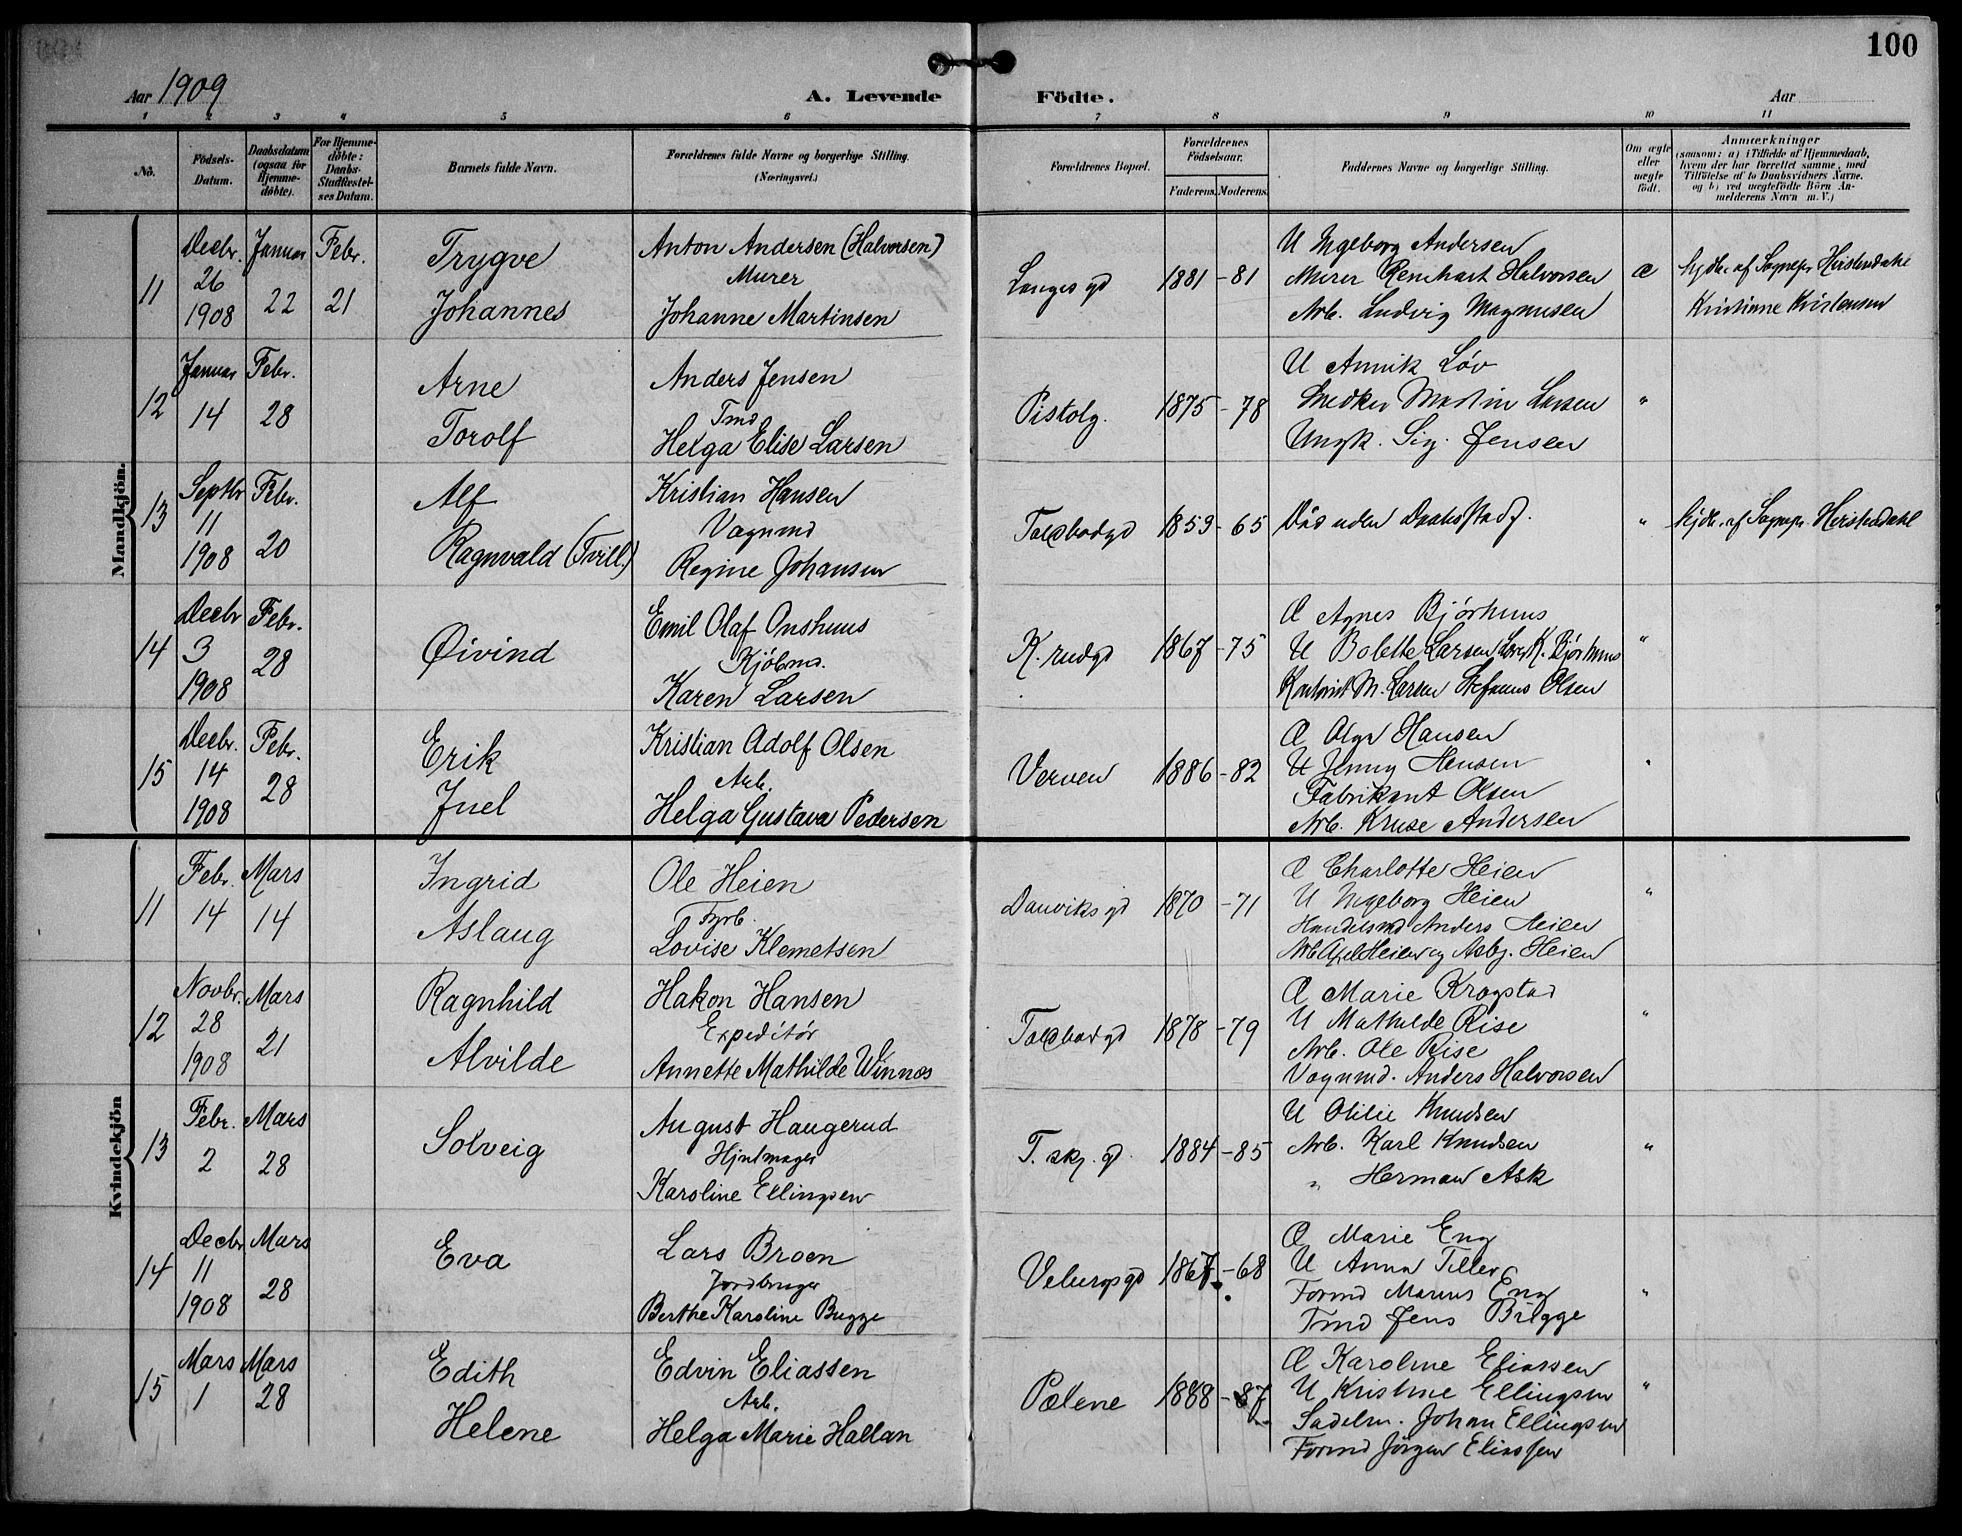 100
Aar 1909
A. Levende Födte.
Aar
1 2 3 4 5 6 7 8 9 10 11
No.
Födsels-Datum.
Daabsdatum (ogsaa for Hjemme-döbte).
For Hjemme-döbte: Daabs-Stadfæstel-ses Datum.
Barnets fulde Navn.
Forældrenes fulde Navne og borgerlige Stilling. (Næringsvei.)
Forældrenes Bopæl.
Forældrenes Födselsaar.
Faderens. Moderens.
Faddernes Navne og borgerlige Stilling.
Om ægte eller uægte födt.
Anmærkninger
(saasom: a) i Tilfælde af Hjemmedaab,
hvem der har forrettet samme, med
Tilföielse af to Daabsvidners Navne.
og b) ved uægtefödte Börn An-
melderens Navn m. V.)
Mandkjön.
11 Decbr. 26 1908 Januar 22 Febr. 21
Trygve Johannes
Anton Andersen (Halvorsen)
Murer
Johanne Martinsen
Langes gd 1881 - 81
U Ingeborg Andersen
Murer Reinhart Halvorsen
Arb. Ludvig Magnusen
æ
hjdbt. af Sognepr.
Kristiane Kristensen
12 Januar 14 Febr. 28
Arne Torolf
Anders Jensen
Tmd
Helga Elise Larsen
Pistolg. 1875 - 78
U Annik Löv
Snedker Martin Larsen
Ungk. Sig. Jensen
"
13 Septbr 11 1908 Febr. 20
Alf Ragnvald (Tvill.)
Kristian Hansen
Vognmd
Regine Johansen
Toldbodgd 1859 - 65
Död uden Daabsstadf.
"
hjdbt. af Sognepr.
14 Decbr 3 1908 Febr. 28
Øivind
Emil Olaf Onshuus
Kjöbmd.
Karen Larsen
K. rudgd 1867 - 75
Æ Agnes Bjørhuus
U Bolette Larsen K. Bjørhuus
M. Larsen Stefanus Olsen
"
15 Decbr. 14 1908 Febr. 28
Erik Juel
Kristian Adolf Olsen
Arb.
Helga Gustava Pedersen
Verven 1886 - 82
Æ Olga Hansen
U Jenny Hansen
Fabrikant Olsen
Arb. Kruse Andersen
"
Kvindekjön
11 Febr. 14 Mars 14
Ingrid Aslaug
Ole Heien
Fyrb.
Lovise Klemetsen
Danviks gd 1870 - 71
Æ Charlotte Heien
U Ingeborg Heien
Handelsmd Anders Heien
Arb Axel Heien og Asbj. Heien
"
12 Novbr. 28 1908 Mars 21
Ragnhild Alvilde
Hakon Hansen
Expeditör
Annette Mathilde Winnæs
Toldbodgd 1878 - 79
Æ Marie Krogstad
U Mathilde Rise
Arb. Ole Rise
Vognmd. Anders Halvorsen
"
13 Febr. 2 Mars 28
Solveig
August Haugerud
Hjulmager
Karoline Ellingsen
T. skj. gd. 1884 - 85
U Otilie Knudsen
Arb. Karl Knudsen
" Herman Ask
"
14 Decbr 11 1908 Mars 28
Eva
Lars Broen
Jordbruger
Berthe Karoline Bugge
1867 - 68
Æ Marie Eng
U Anna Teller
Formd Marius Eng
Tmd Jens Brigge
"
15 Mars 1 Mars 28
Edith Helene
Edvin Eliassen
Arb.
Helga Marie Hallan
Pælene 1888 - 87
Æ Karoline Eliassen
U Kristine Ellingsen
Sadelm. Johan Ellingsen
Formd Jörgen Eliassen
"